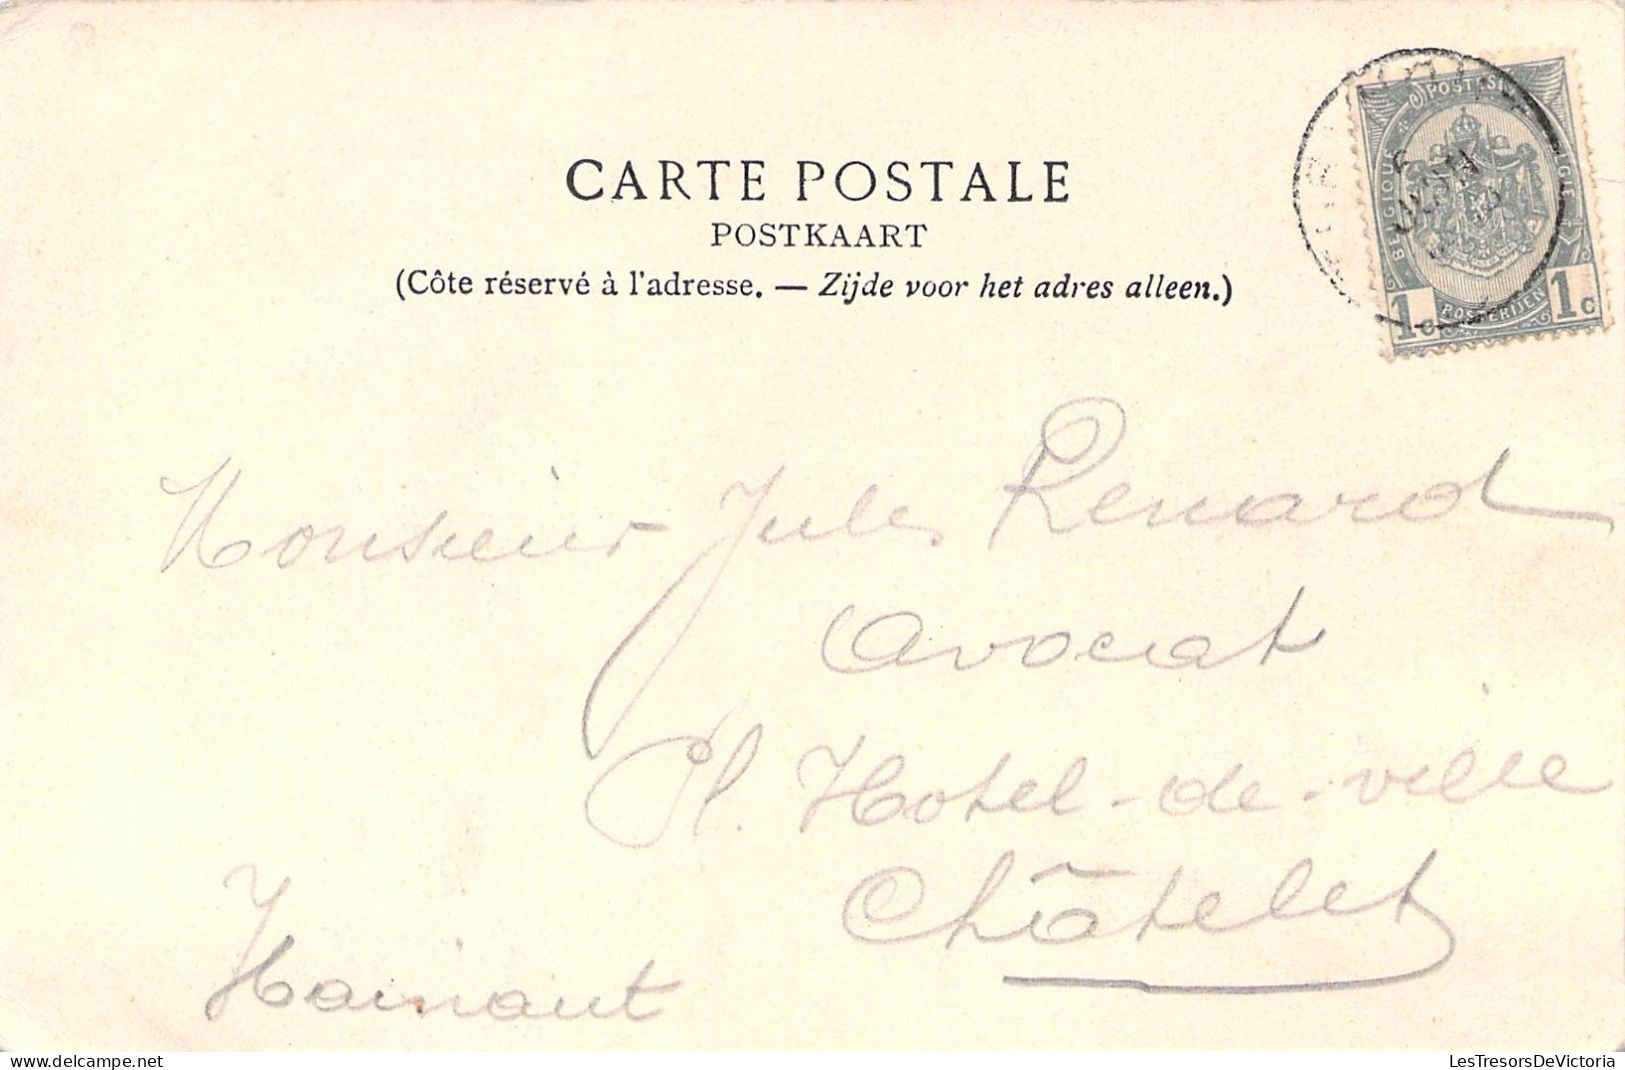 CARTE POSTALE
POSTKAART
(Côte réservé à l'adresse. — Zijde voor het adres alleen.)
POSTES
BELGIQUE
BELGIË
1c POSTERIJEN 1c
Monsieur Jules Renard
Avocat
Pl. Hotel-de-ville
Châtelet
Hainaut
delcampe.net
LesTresorsDeVictoria